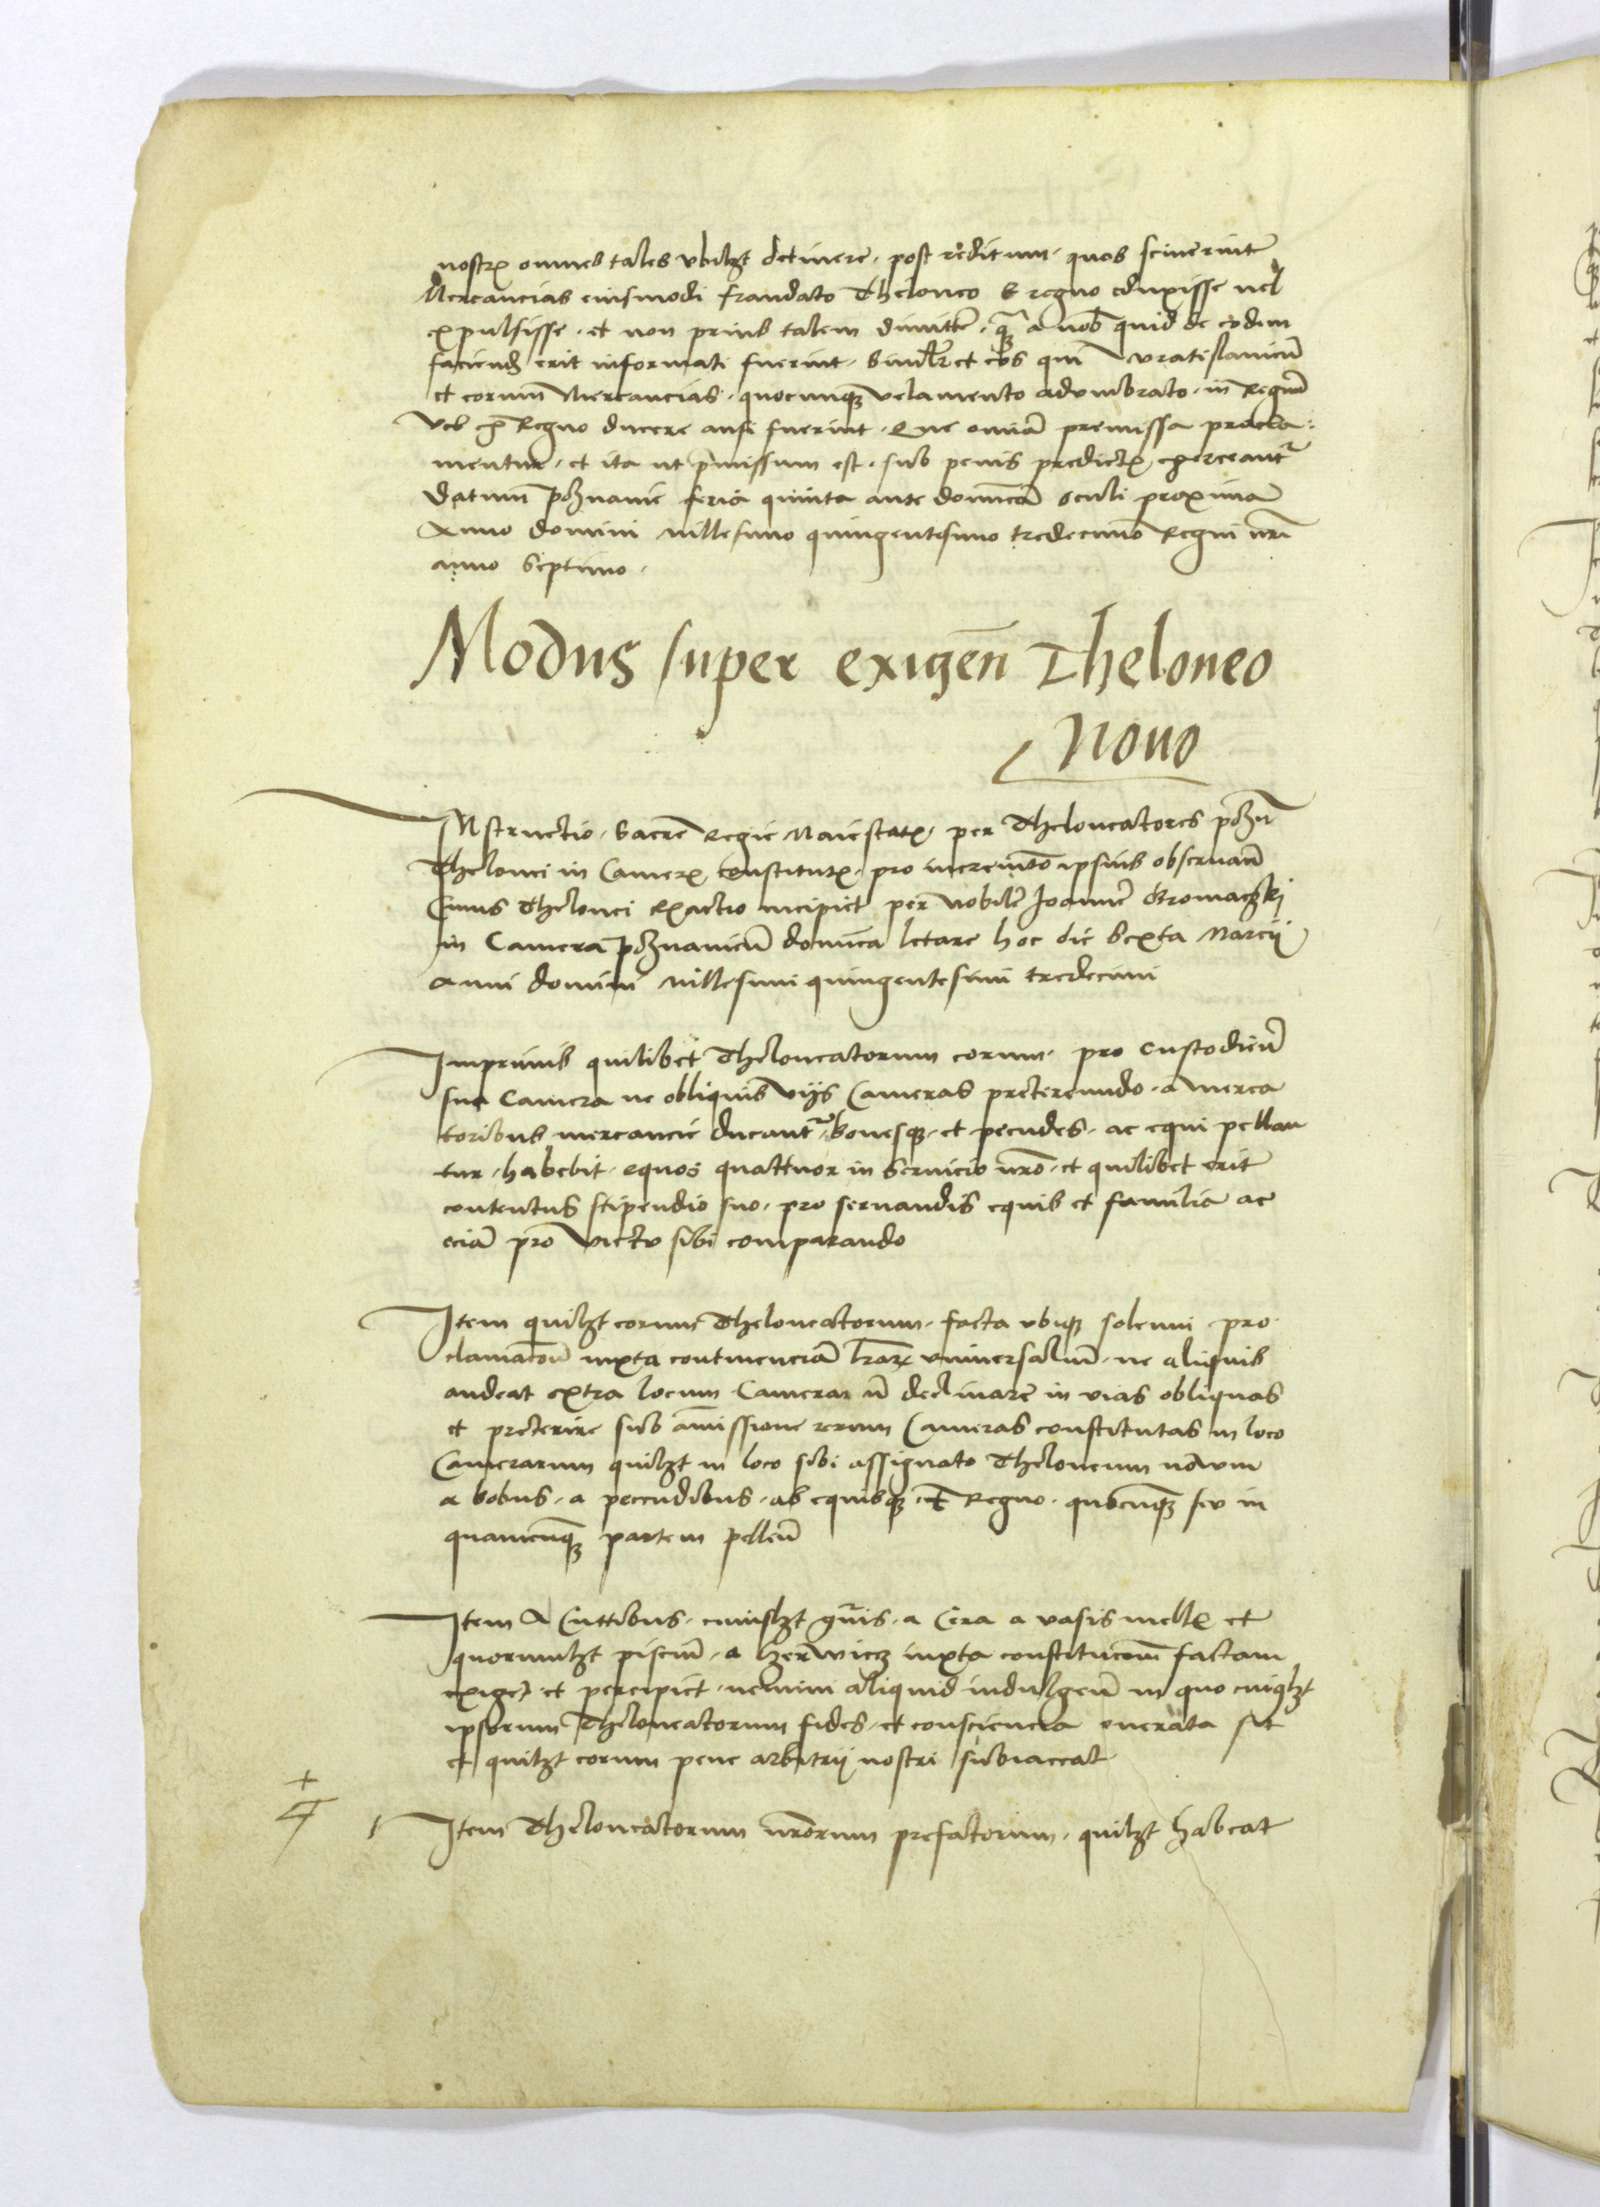 nostr omnes tales vbilzt detinere, post reditum, quos sciuerint
Mercancias eiusmodi fraudato Theloneo E regno eduxisse uel
expulsisse, et non prius talem dimitter, qz a nob quid de eodem
faciend erit informati fuerint, Similr et eos qui Vratislauieñ
et eorum Mercancias, quocunqz velamento adumbrato, in Regnũ
Vel ex Regno ducere ausi fuerint, Que omnia premissa procla:
mentur, et ita ut pmissum est, sub penis predict exerceant
Datum poznanie feria quinta ante dominicã Oculi proxima
Anno domini millesimo quingentesimo tredecimo Regni nri
anno Septimo.
Modus super exigeñ Theloneo
Nouo
INstructio, Sacre Regie Maiestat, per Theloneatores pozñ
Thelonei in Camer constitut, pro incremẽto ipsius obseruañ
Cuius Thelonei exactio incipiet per Nobilẽ Ioannẽ Gromaczki
in Camera poznanieñ dominica letare hoc die Sexta Marcij
Anni domini Millesimi quingentesimi tredecimi
Imprimis quilibet Theloneatorum eorum, pro custodieñ
sua Camera ne obliquis Vijs Cameras pretereundo, a merca
toribus mercancie ducant, Bouesqz, et pecudes, ac equi pellan
tur, habebit, equos quattuor in Seruicio nro, et quilibet erit
contentus stipendio suo, pro seruandis equis et familia ac
eciã pro Victu sibi comparando
Item quilzt eorum Theloneatorum, facta vbiqz solenni pro
clamacõñ iuxta continenciã lrarz vniuersaliũ, ne aliquis
audeat extra locum Camerar ñ declinare in vias obliquas
et preterire sub amissione rerum Cameras constitutas in loco
Camerarum quilzt in loco sibi assignato Theloneum nouum
a bobus, a peccudibus, ab equisqz, Regno, quocunqz seu in
quamcunqz partem pelleñ
Item A Cuttibus, cuiuslzt gnis, a Cera a vasis mell et
quorumlzt pisciũ, a iuxta constitucõm factam
exiget et percipiet, nemini aliquid indulgeñ in quo cuiqlzt
ipsorum Theloneatorum fides, et consciencia onerata sit
et quilzt eorum pene arbitrij nostri subiaceat
Item Theloneatorum nrorum prefatorum, quilzt habeat